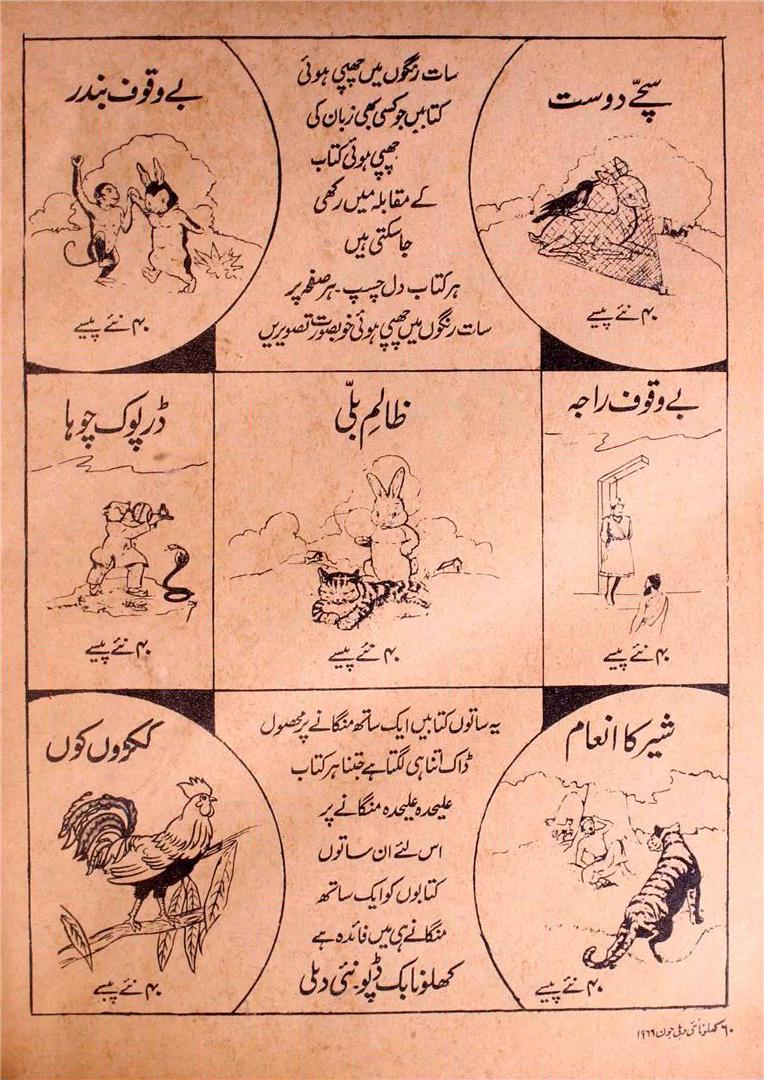 سچّے دوست
۴۰ نئے پیسے
سات رنگوں میں چھپی ہوئی
کتابیں جو کسی بھی زبان کی
چھپی ہوئی کتاب
کے مقابلہ میں رکھی
جا سکتی ہیں
ہر کتاب دل چسپ۔ ہر صفحہ پر
سات رنگوں میں چھپی ہوئی خوبصورت تصویریں
بے وقوف بندر
۴۰ نئے پیسے
بے وقوف راجہ
۴۰ نئے پیسے
ظالم بلّی
۴۰ نئے پیسے
ڈرپوک چوہا
۴۰ نئے پیسے
شیر کا انعام
۴۰ نئے پیسے
یہ ساتوں کتابیں ایک ساتھ منگانے پر محصول
ڈاک اتنا ہی لگتا ہے جتنا ہر کتاب
علیحدہ علیحدہ منگانے پر
اس لئے ان ساتوں
کتابوں کو ایک ساتھ
منگانے ہی میں فائدہ ہے
کھلونا بک ڈپو۔ نئی دہلی
ککڑوں کوں
۴۰ نئے پیسے
۶۰ کھلونا نئی دہلی جون ۱۹۶۶